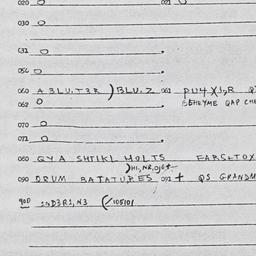 020 O 021
030 O
032 O
050 O
060 A BLU. T3R ) BLU. Z 061 PU4. X1,R
062 O BEHEYME GAP CHE
070 O
072 O
080 GY A SHTIKL HOLTS FARSETOX
) H1, NR, 
090 DRUM BATATURES 092 + QS GRANDM
900 IND3R1, N3 (/105101